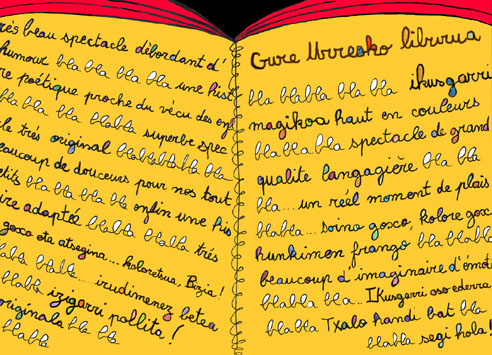 rès beau spectacle débordant d'
humour bla bla bla bla une hist
re poétique proche du vécu des enf
bla bla bla blabla superbe spec
le très original blablablabla bla
eaucoup de douceurs pour nos tout
tits bla bla bla bla enfin une his
ire adaptée blabla blabla très
goxo eta atsegina... koloretsua, Bizia!
labla blabla... irudimenez betea
blabla izigarri pollita!
originala bla bla
blabla
Gure Urresko liburua
bla blabla bla bla ikusgarri
magikoa haut en couleurs
bla bla bla spectacle de grand
qualite langagière bla bla
bla... un réel moment de plais
blabla... soinu goxo, kolore goxo
hunkimen frango bla blabla
beaucoup d'imaginaire d'émoti
blabla bla... Ikusgarri oso ederra
blabla Txalo handi bat bla
blabla segi hola!